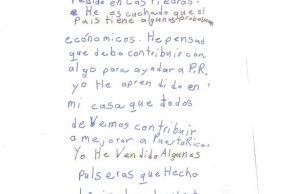 reside en Las Piedras.
* He escuchado que el
PaIs tiene algunos problemas
económicos. He pensad
que debo contribuir con
algo para ayudar a P.R.
yo He aprendido en
mi casa que dodos
deVemos contribuir
a mejorar a PuertoRico.
Yo He Vendido Algunas
Pulseras que Hecho